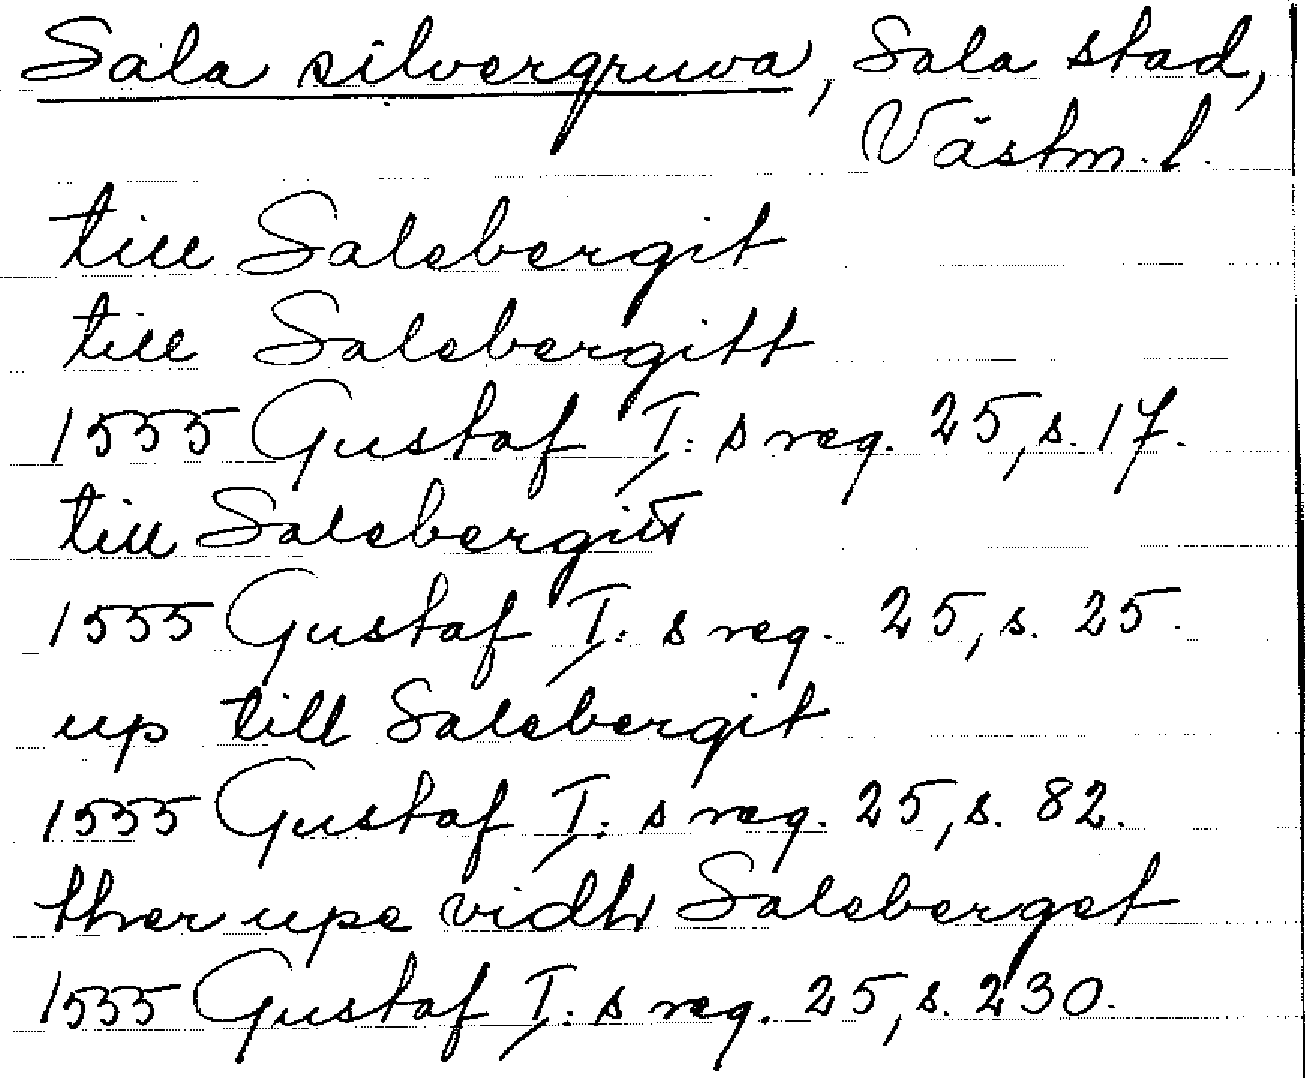 Sala silvergruva, Sala stad,
Västm. l.
till Salebergit
till Salebergitt
1555 Gustaf I:s reg. 25, s. 17.
till Salebergitt
1555 Gustaf I:s reg. 25, s. 25.
up till Salebergit
1555 Gustaf I:s reg. 25, s. 82.
ther upe vidh Saleberget
1555 Gustaf I:s reg. 25, s. 230.